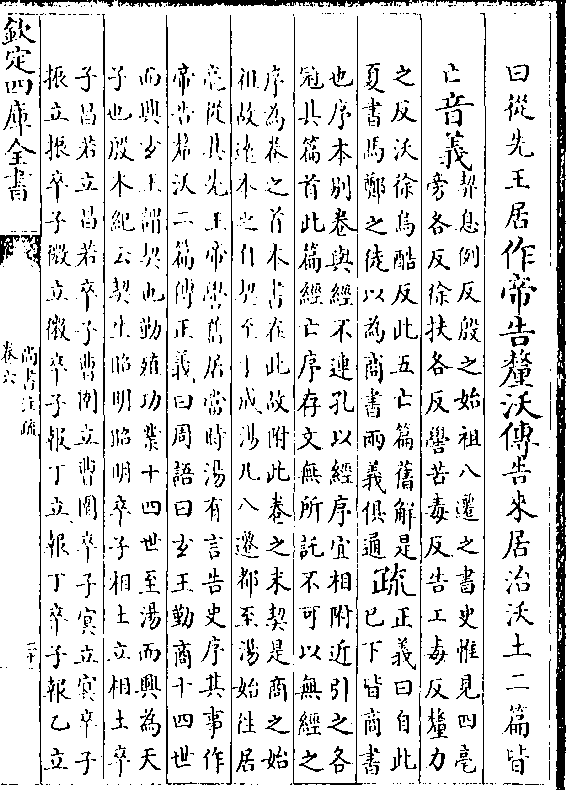 曰從先王居作帝告釐沃傳告來居治沃土二篇皆
亡音義契息例反殷之始祖八遷之書史惟見四亳
旁各反徐扶各反嚳苦毒反告工毒反釐力
之反沃徐烏酷反此五亡篇舊解是
夏書馬鄭之徒以為商書兩義俱通疏正義曰自此
已下皆商書
也序本别卷與經不連孔以經序宜相附近引之各
冠其篇首此篇經亡序存文無所託不可以無經之
序為卷之首本書在此故附此卷之末契是商之始
祖故遠本之自契至于成湯凡八遷都至湯始往居
亳從其先王帝嚳舊居當時湯有言告史序其事作
帝告釐沃二篇傳正義曰周語曰玄王勤商十四世
而興玄王謂契也勤殖功業十四世至湯而興為天
子也殷本紀云契生昭明昭明卒子相土立相土卒
子昌若立昌若卒子曹圉立曹圉卒子冥立冥卒子
振立振卒子微立微卒子報丁立報丁卒子報乙立
欽定四庫全書
尚書注疏
卷六